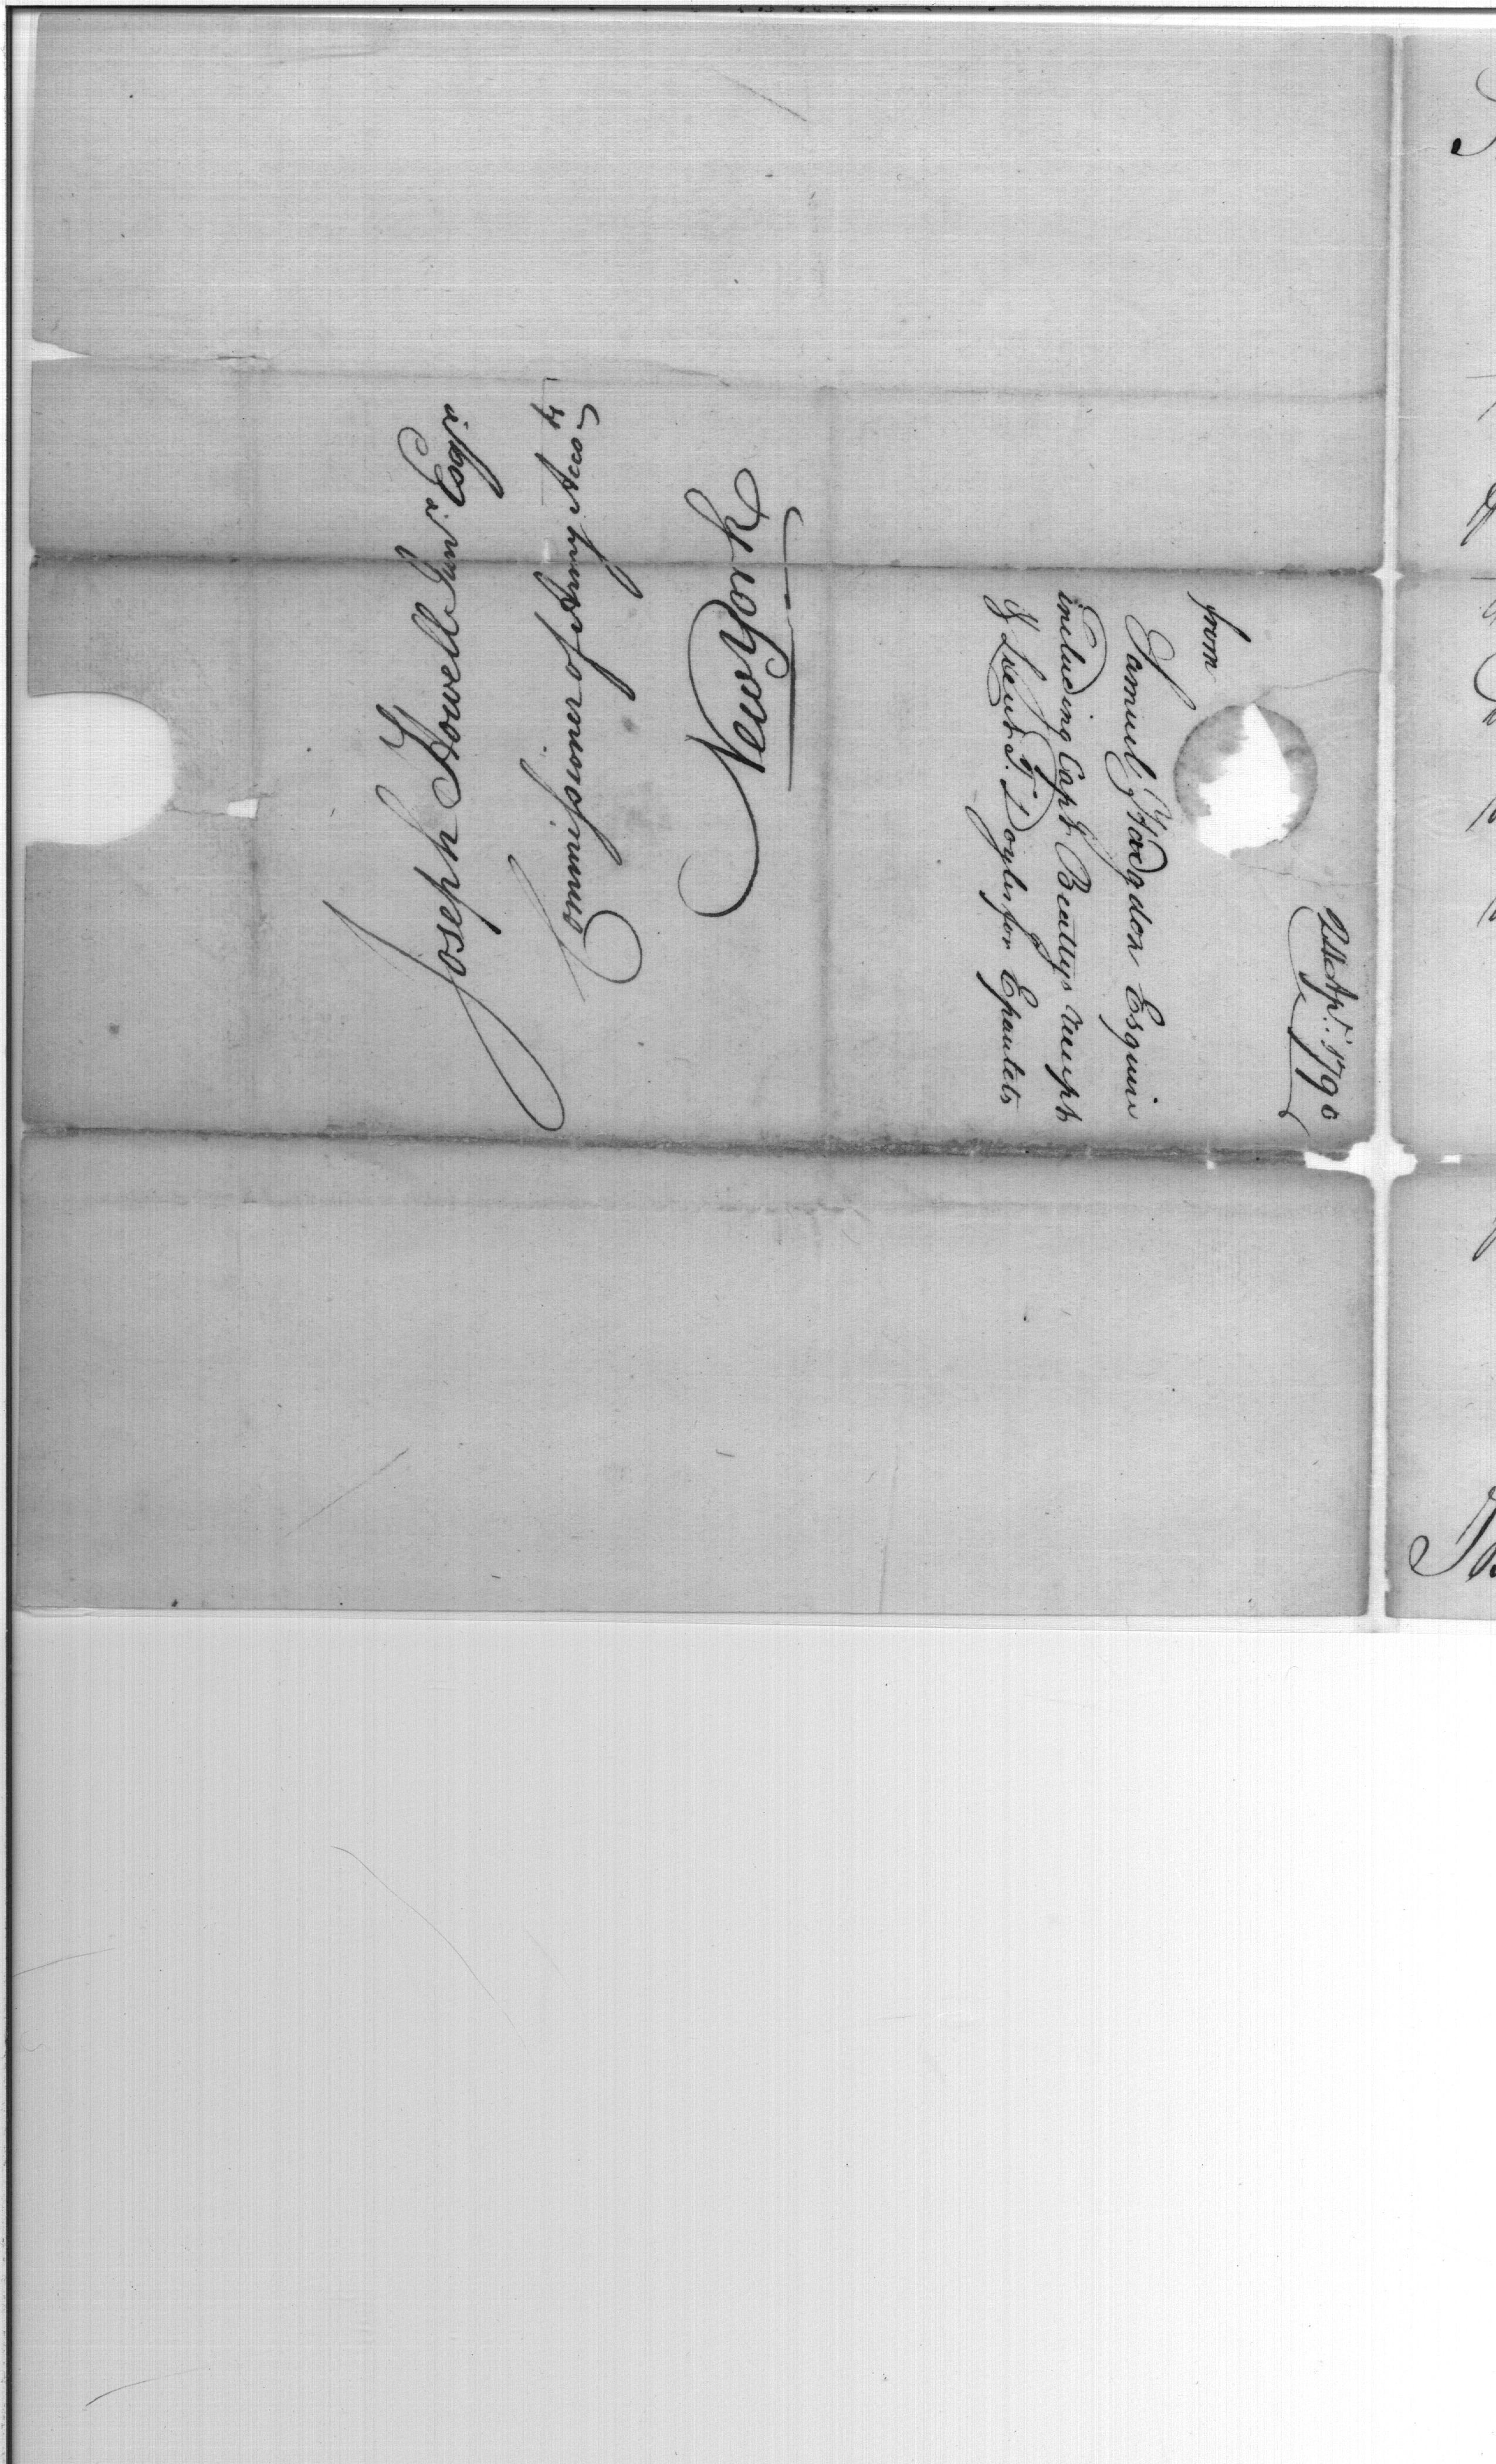 Joseph Howell Junr. Esqr.
Commissioner of Army Accots
New York
Apl. 1790
from
Samuel Hodgdon Esquire
including Capt Beattys receipt
& Lieut. T. Doyles for Epaulets